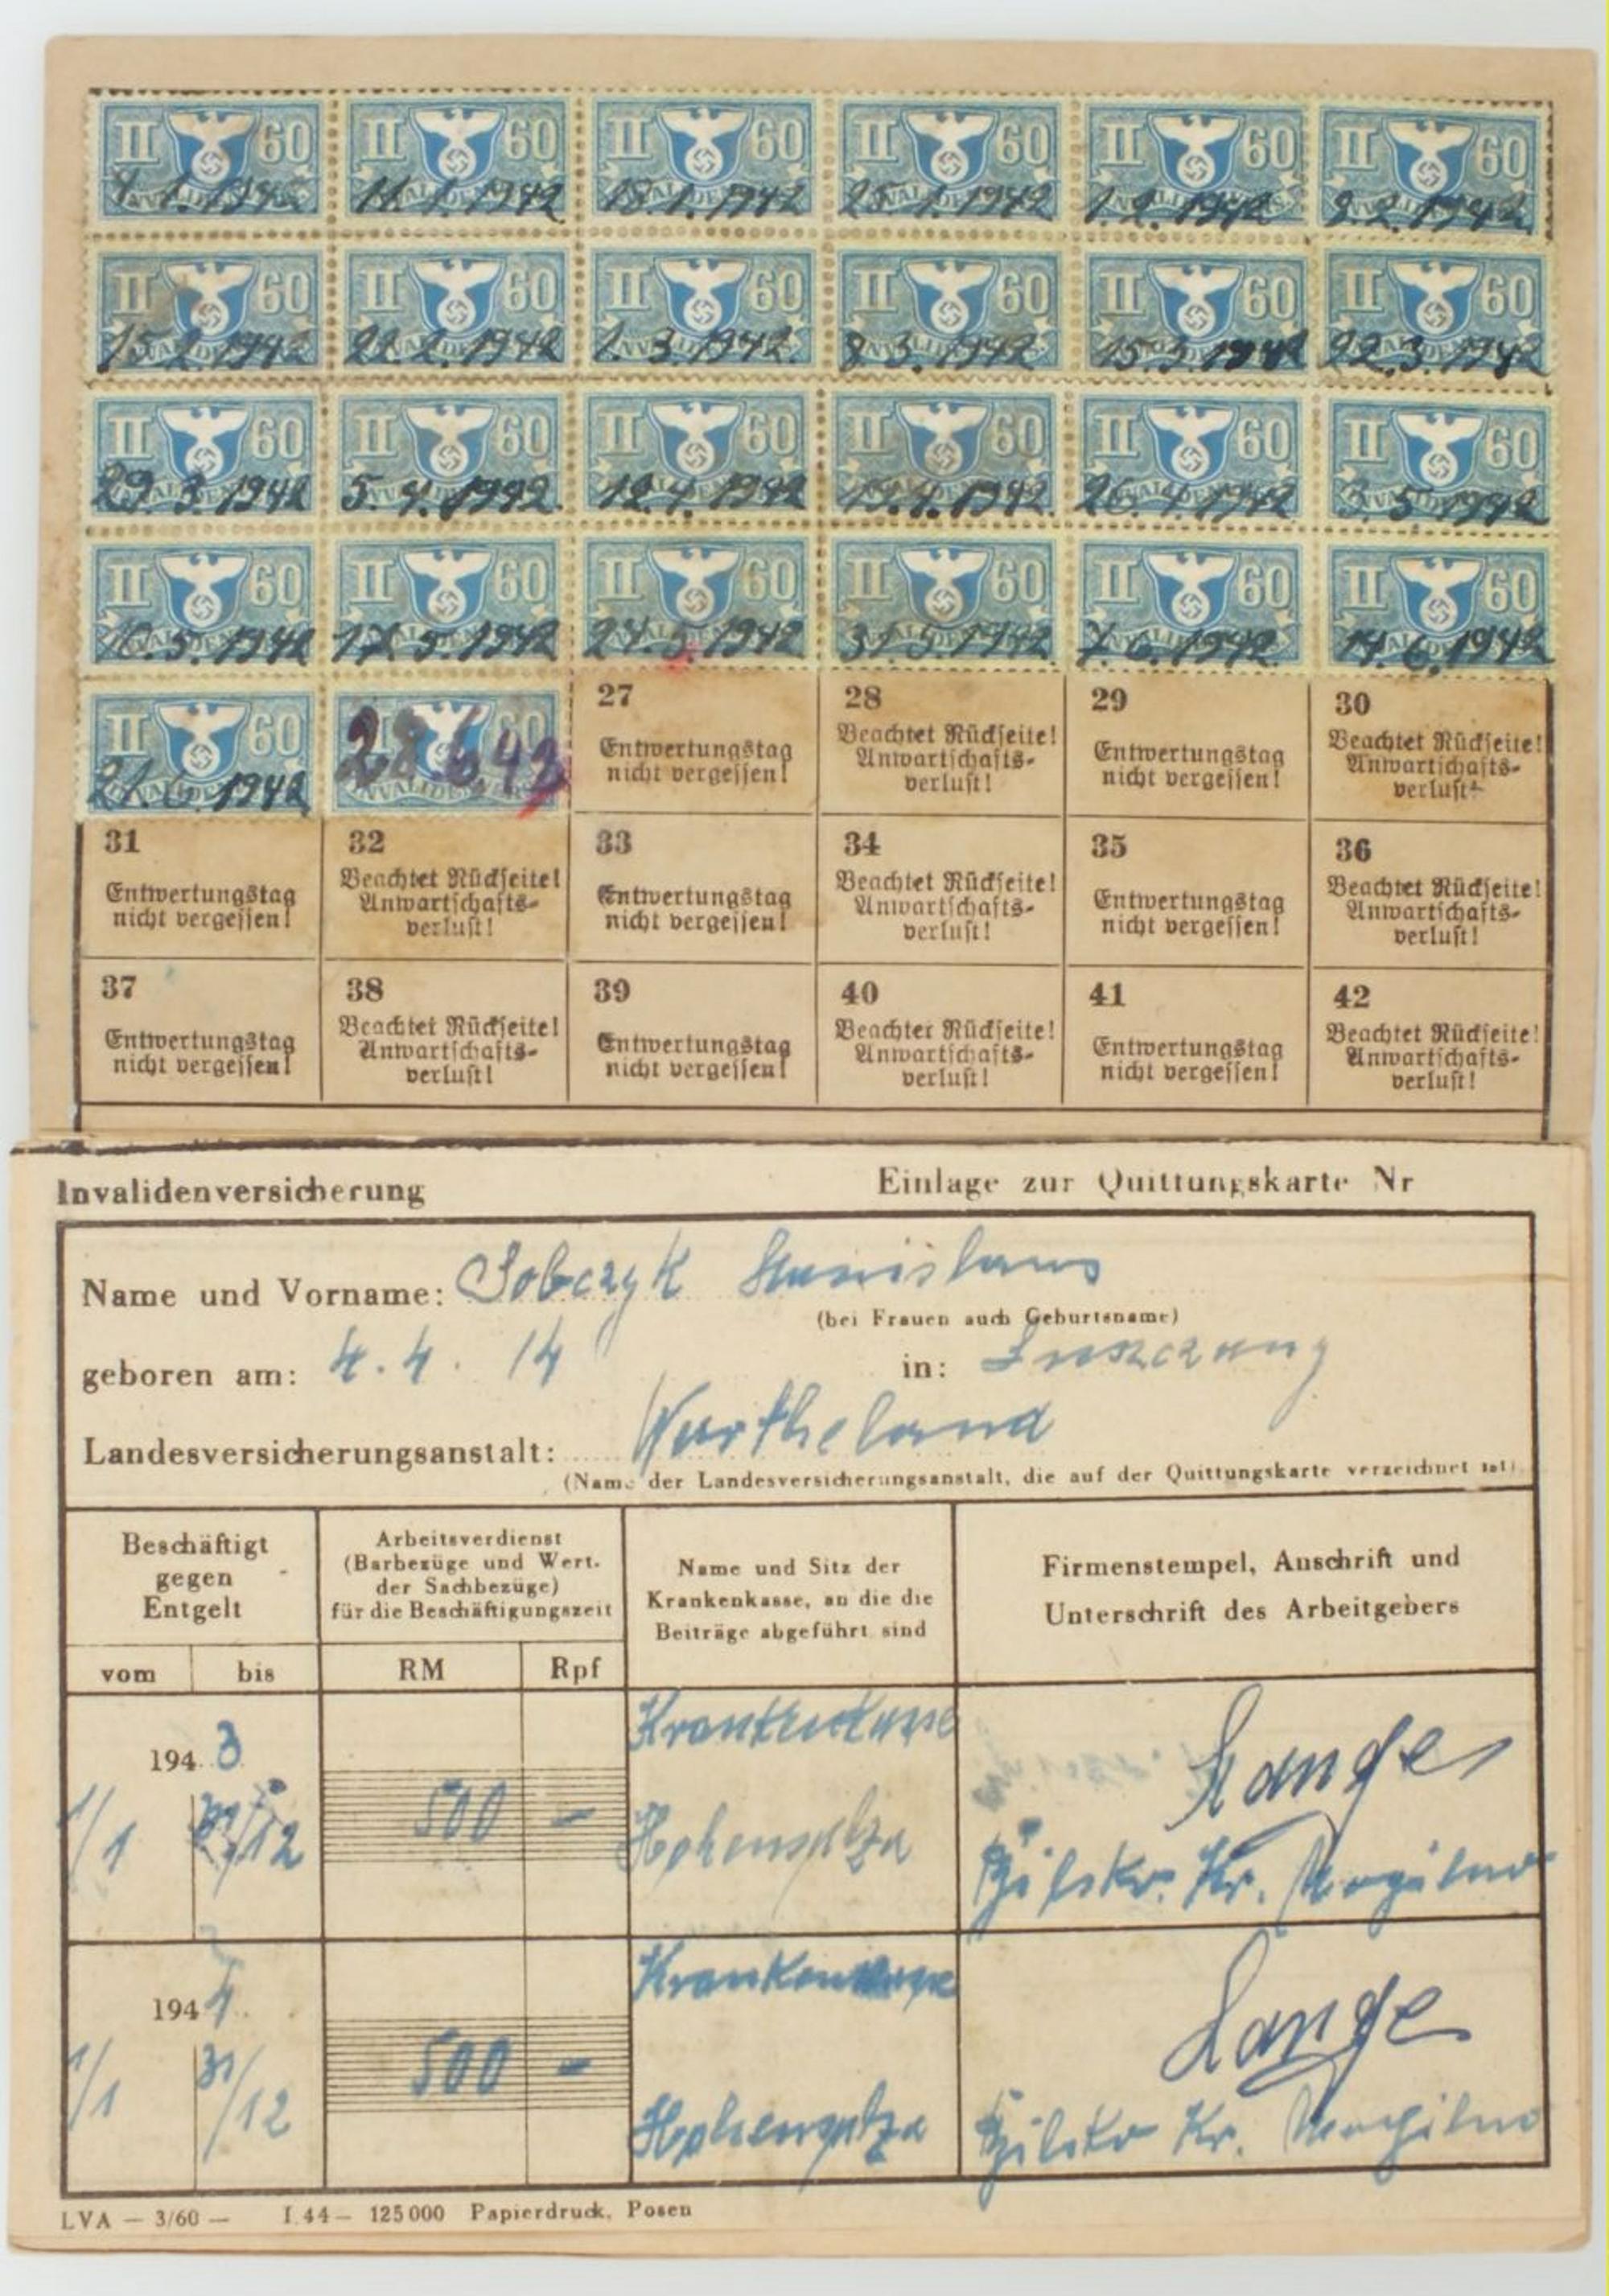 II 60 II 60 II 60 II 60 II 60 II 60
4.1.1942 11.1.1942 18.1.1942 25.1.1942 1.2.1942 9.2.1942
II 60 II 60 II 60 II 60 II 60 II 60
15.2.1942 22.2.1942 1.3.1942 8.3.1942 15.3.1942 22.3.1942
II 60 II 60 II 60 II 60 II 60 II 60
29.3.1942 5.4.1942 12.4.1942 19.4.1942 26.4.1942 3.5.1942
II 60 II 60 II 60 II 60 II 60 II 60
10.5.1942 17.5.1942 24.5.1942 31.5.1942 7.6.1942 14.6.1942
II 60 60
21.6.1942 28.6.43
27 28 29 30
Entwertungstag nicht vergessen! Beachtet Rückseite! Anwartschafts-verlust! Entwertungstag nicht vergessen! Beachtet Rückseite! Anwartschafts-verlust!
31 32 33 34 35 36
Entwertungstag nicht vergessen! Beachtet Rückseite! Anwartschafts-verlust! Entwertungstag nicht vergessen! Beachtet Rückseite! Anwartschafts-verlust! Entwertungstag nicht vergessen! Beachtet Rückseite! Anwartschafts-verlust!
37 38 39 40 41 42
Entwertungstag nicht vergessen! Beachtet Rückseite! Anwartschafts-verlust! Entwertungstag nicht vergessen! Beachtet Rückseite! Anwartschafts-verlust! Entwertungstag nicht vergessen! Beachtet Rückseite! Anwartschafts-verlust!
Invalidenversicherung Einlage zur Quittungskarte Nr
Name und Vorname: Sobczyk Stanislaus
(bei Frauen auch Geburtsname)
geboren am: 4.4.14 in:
Landesversicherungsanstalt: Wartheland
(Name der Landesversicherungsanstalt, die auf der Quittungskarte verzeichnet ist)
Beschäftigt
gegen
Entgelt
Arbeitsverdienst
(Barbezüge und Wert.
der Sachbezüge)
für die Beschäftigungszeit
Name und Sitz der
Krankenkasse, an die die
Beiträge abgeführt sind
Firmenstempel, Anschrift und
Unterschrift des Arbeitgebers
vom bis RM Rpf
1943
1/1 31/12 500 –
Krankenkasse
Hohensalza
Lange
Kr. Mogilno
1944
1/1 31/12 500 –
Krankenkasse
Hohensalza
Lange
Kr. Mogilno
LVA — 3/60 — I.44 — 125000 Papierdruck, Posen